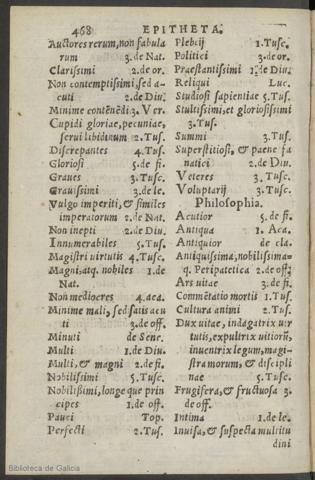 468 EPITHETA.
Auctores rerum, non fabula
rum 3. de Nat.
Clarissimi 2. de or.
Non contemptissimi, sed a-
cuti 2. de Diu.
Minime contẽnẽdi 3. Ver.
Cupidi gloriae, pecuniae,
serui libidinum 2. Tus.
Discrepantes 4. Tus.
Gloriosi 5. de fi.
Graues 3. Tusc.
Grauissimi 3. de le.
Vulgo imperiti, & similes
imperatorum 2. de Nat.
Non inepti 2. de Diu.
Innumerabiles 5. Tus.
Magistri uirtutis 4. Tusc.
Magni, atq. nobiles 1. de
Nat.
Non mediocres 4. aca.
Minime mali, sed satis acu
ti 3. de off.
Minuti de Senc.
Multi 1. de Diu.
Multi, & magni 2. de fi.
Nobilissimi 5. Tusc.
Nobilissimi, longe que prin
cipes 1. de off.
Pauci Top.
Perfecti 2. Tus.
Plebeij 1. Tusc.
Politici 3. de or.
Praestantissimi 1. de Diu.
Reliqui Luc.
Studiosi sapientiae 5. Tus.
Stultissimi, et gloriosissimi
3. Tus.
Summi 3. Tus.
Superstitiosi, & paene fa
natici 2. de Diu.
Veteres 3. Tusc.
Voluptarij 3. Tusc.
Philosophia.
Acutior 5. de fi.
Antiqua 1. Aca.
Antiquior de cla.
Antiquissima, nobilissima-
q. Peripatetica 2. de off.
Ars uitae 3. de fi.
Commẽtatio mortis 1. Tus.
Cultura animi 2. Tus.
Dux uitae, indagatrix uir
tutis, expultrix uitiorũ,
inuentrix legum, magi-
stra morum, & discipli
nae 5. Tusc.
Frugifera, & fructuosa 3.
de off.
Intima 1. de le.
Inuisa, & suspecta multitu
dini
Biblioteca de Galicia